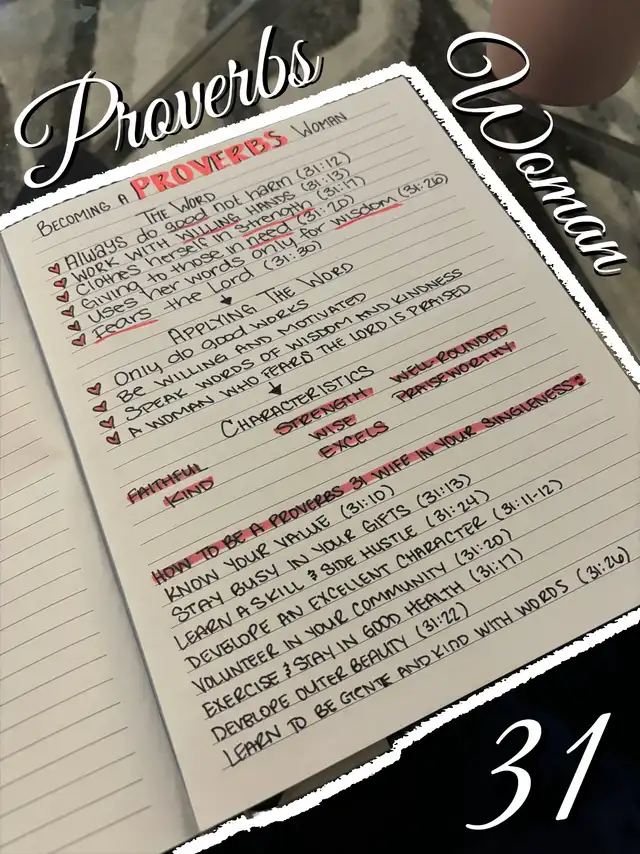 Proverbs
Woman
BECOMING A PROVERBS WOMAN
THE WORD
Always do good not harm (31:12)
WORK WITH WILLING HANDS (31:13)
Clothes herself in strength (31:17)
Giving to those in need (31:20)
Uses her words only for wisdom (31:26)
Fears the Lord (31:30)
APPLYING THE WORD
ONLY DO GOOD WORKS
BE WILLING AND MOTIVATED
SPEAK WORDS OF WISDOM AND KINDNESS
A WOMAN WHO FEARS THE LORD IS PRAISED
CHARACTERISTICS
FAITHFUL STRENGTH WELL-ROUNDED
KIND WISE PRAISEWORTHY
EXCELS
HOW TO BE A PROVERBS 31 WIFE IN YOUR SINGLENESS:
KNOW YOUR VALUE (31:10)
STAY BUSY IN YOUR GIFTS (31:13)
LEARN A SKILL & SIDE HUSTLE (31:24)
DEVELOPE AN EXCELLENT CHARACTER (31:11-12)
VOLUNTEER IN YOUR COMMUNITY (31:20)
EXERCISE & STAY IN GOOD HEALTH (31:17)
DEVELOPE OUTER BEAUTY (31:22)
LEARN TO BE GENTE AND KIND WITH WORDS (31:26)
31